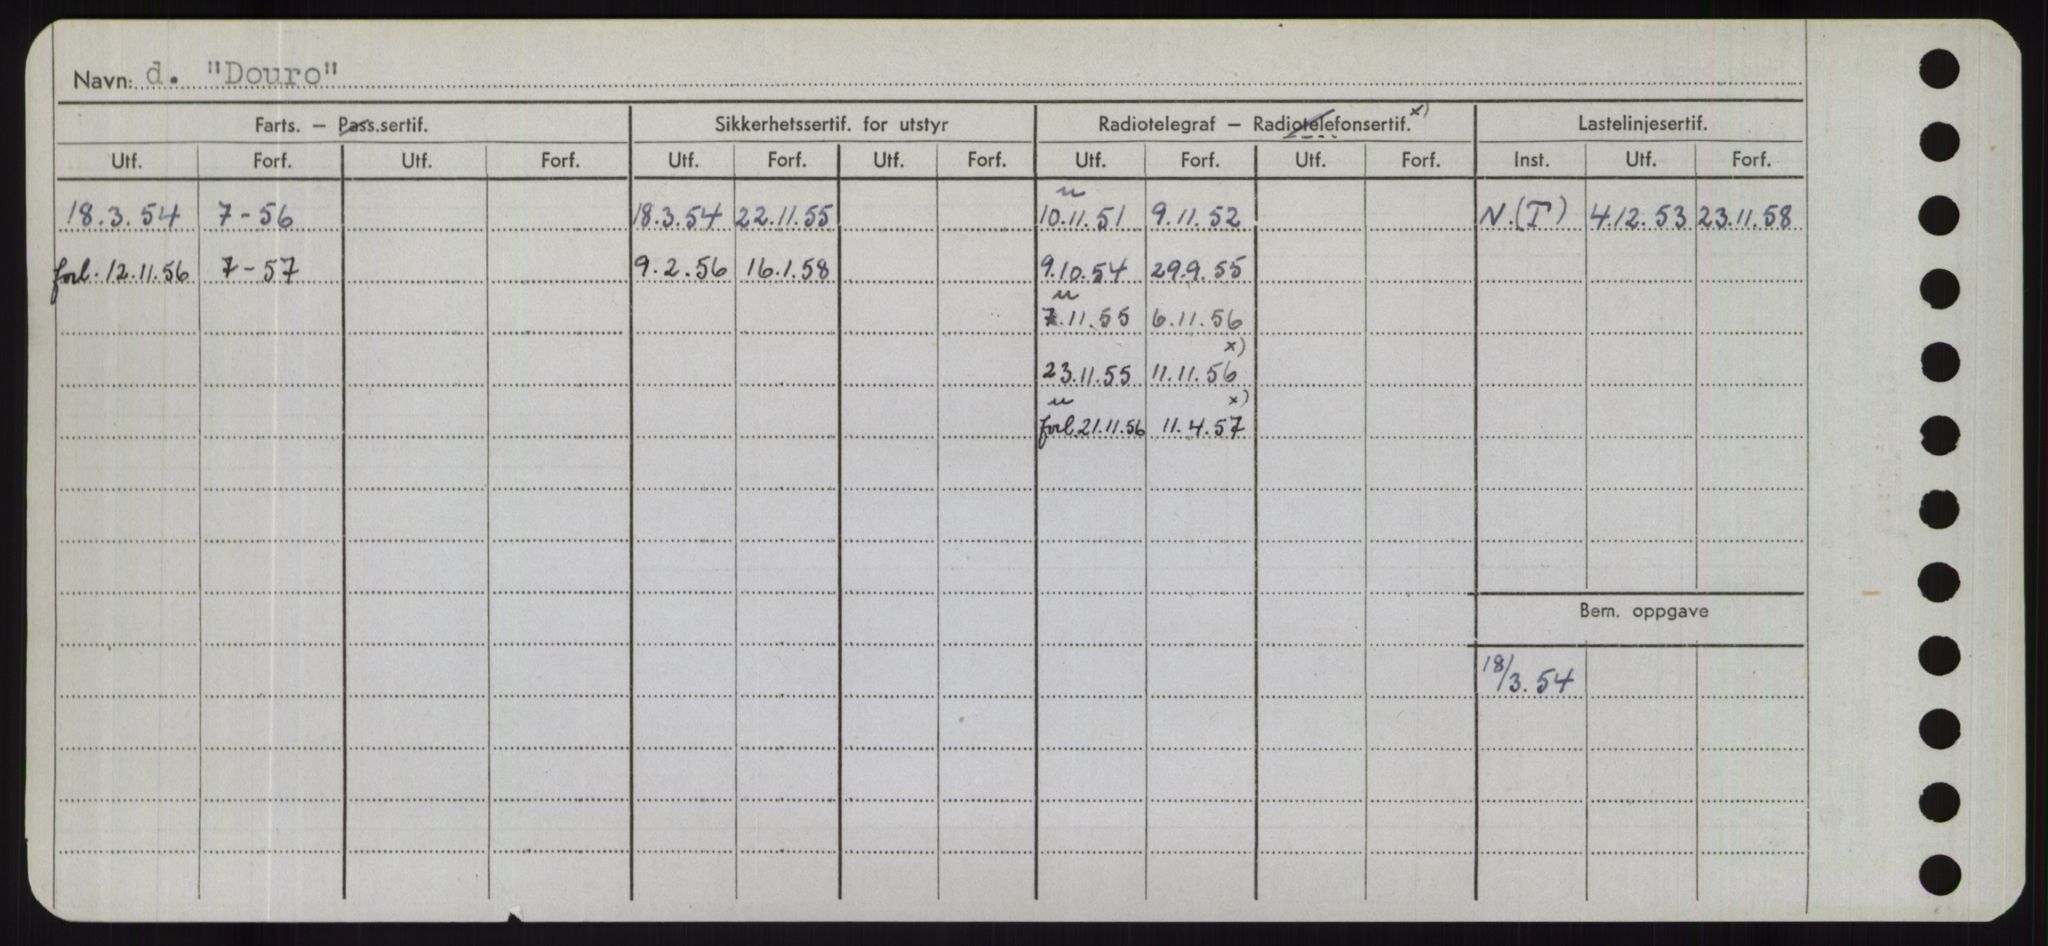 Navn: d. "Douro"
Farts. – Pass.sertif. Sikkerhetssertif. for utstyr Radiotelegraf – Radiotelefonsertif. x) Lastelinjesertif.
Utf. Forf. Utf. Forf. Utf. Forf. Utf. Forf. Utf. Forf. Utf. Forf. Inst. Utf. Forf.
u
18.3.54 7-56 18.3.54 22.11.55 10.11.51 9.11.52 N.(T) 4.12.53 23.11.58
forl. 12.11.56 7-57 9.2.56 16.1.58 9.10.54 29.9.55
u
7.11.55 6.11.56
x)
23.11.55 11.11.56
u x)
forl. 21.11.56 11.4.57
Bem. oppgave
18/3.54